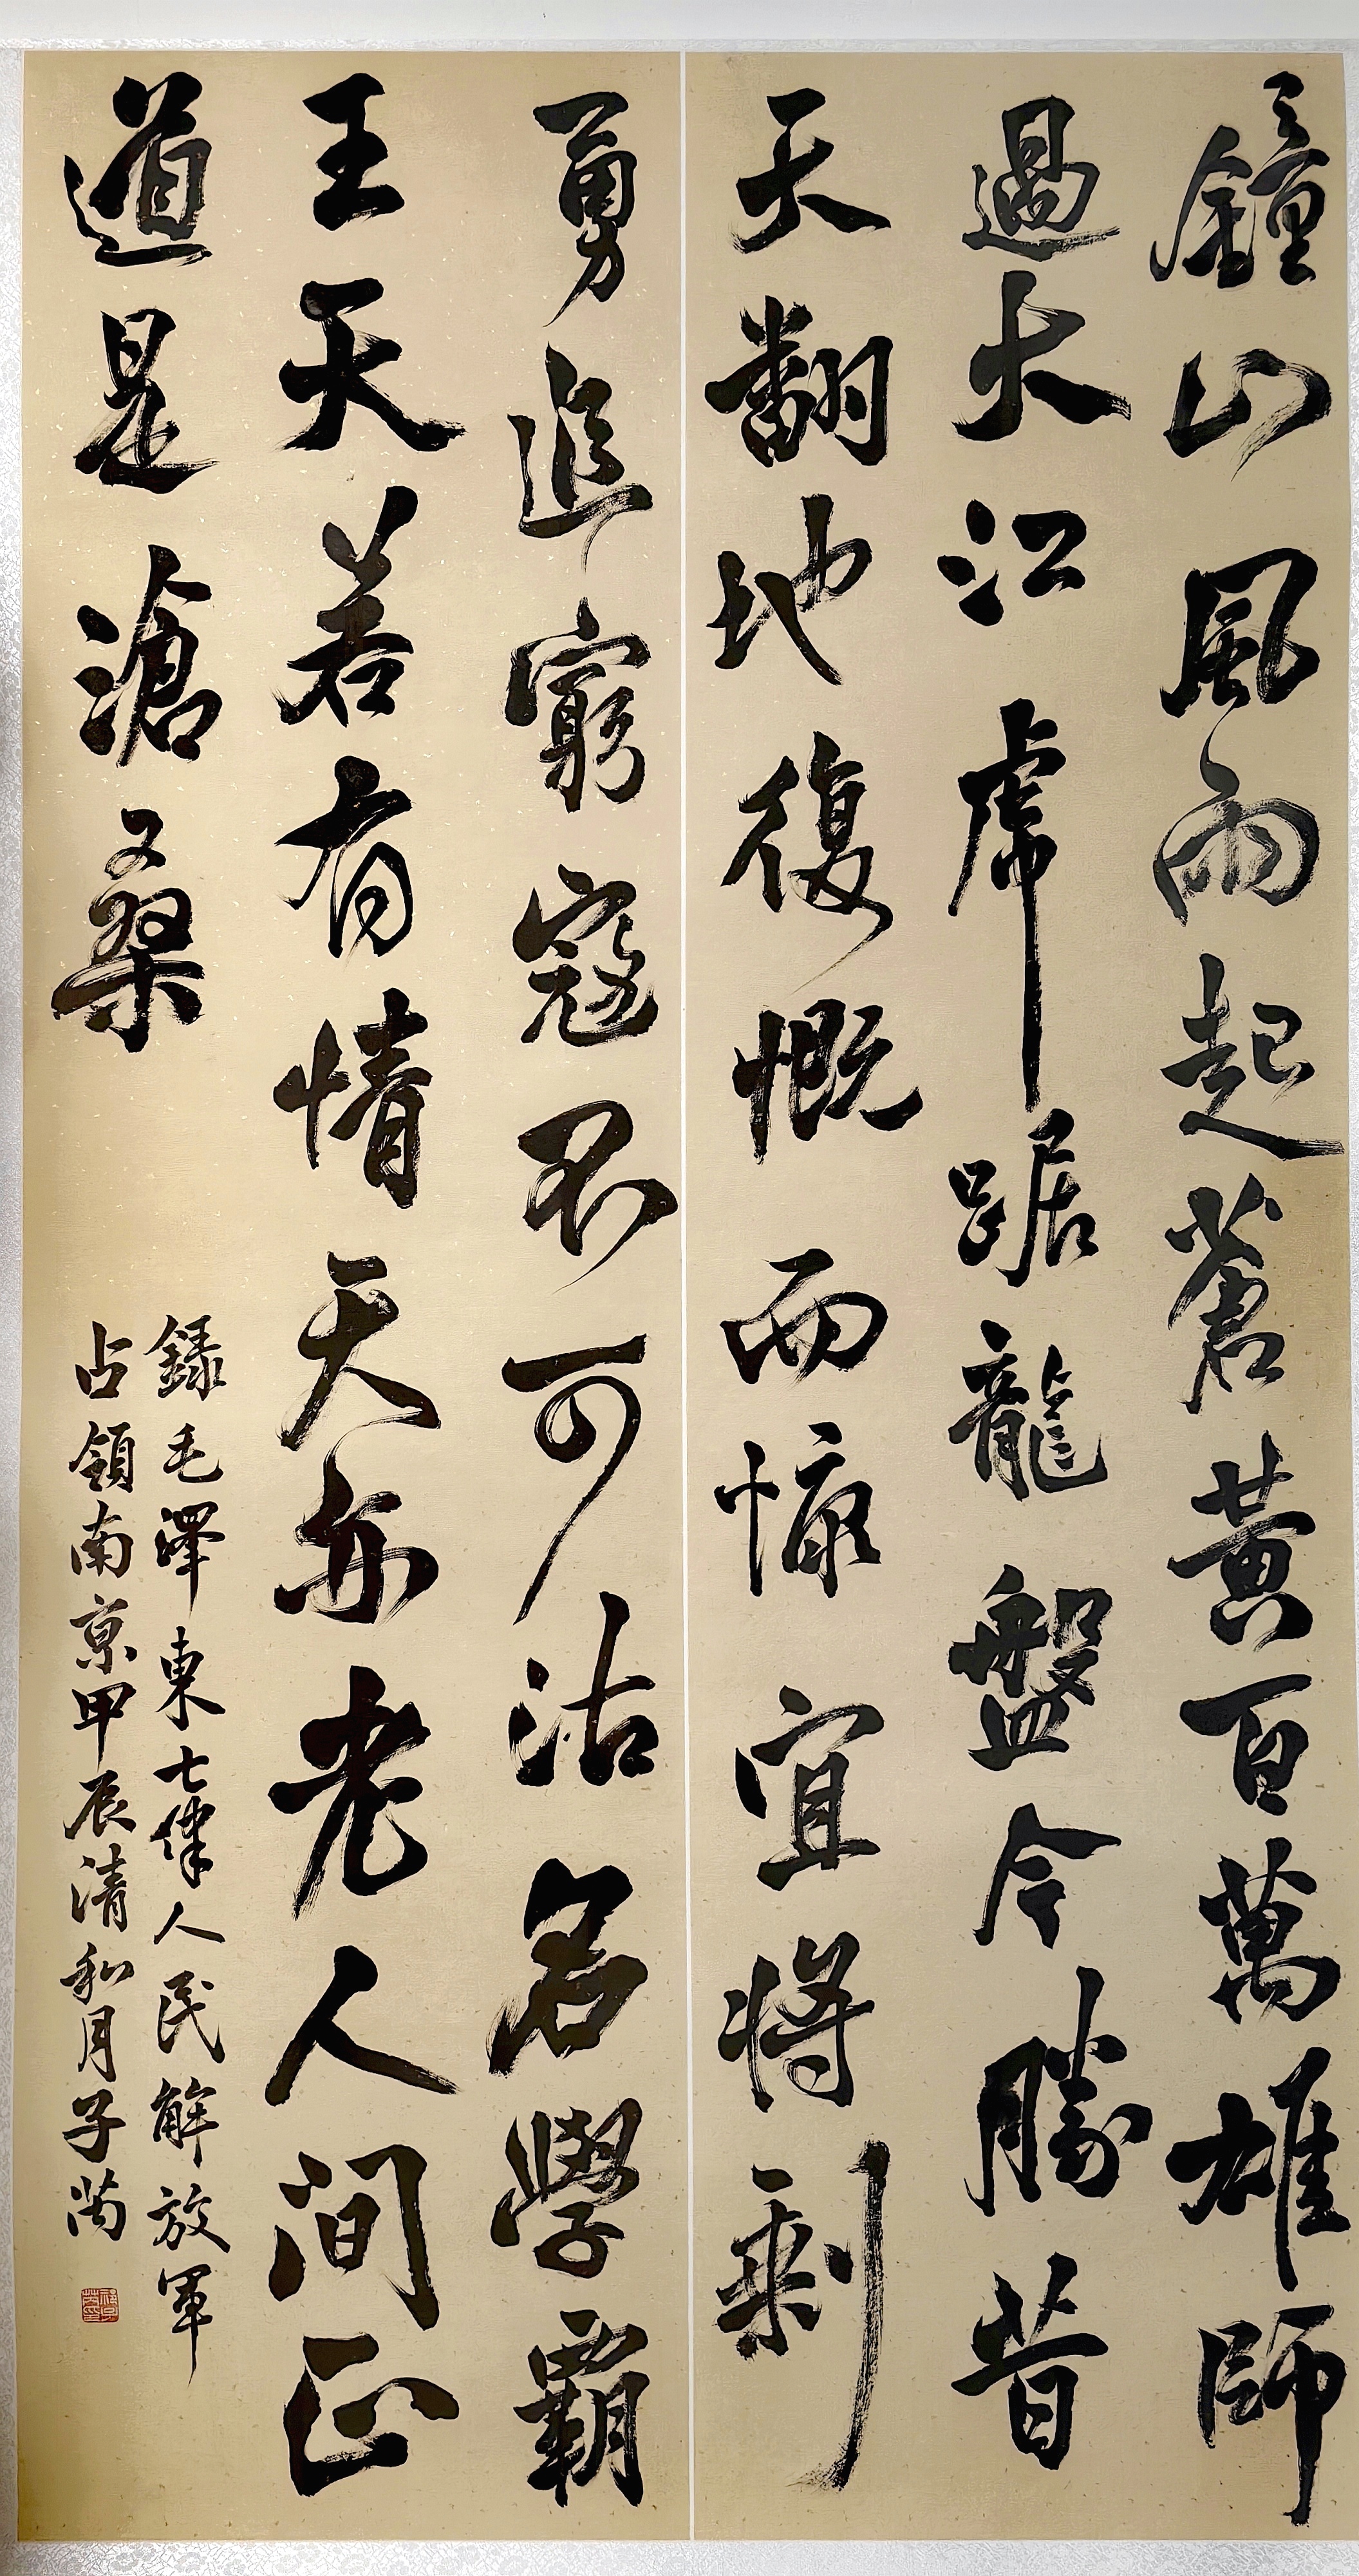 鐘山風雨起蒼黃百萬雄師
過大江虎踞龍盤今勝昔
天翻地復慨而慷宜將剩
勇追窮寇不可沽名學霸
王天若有情天亦老人間正
道是滄桑
錄毛澤東七律人民解放軍
占領南京甲辰清和月子芮